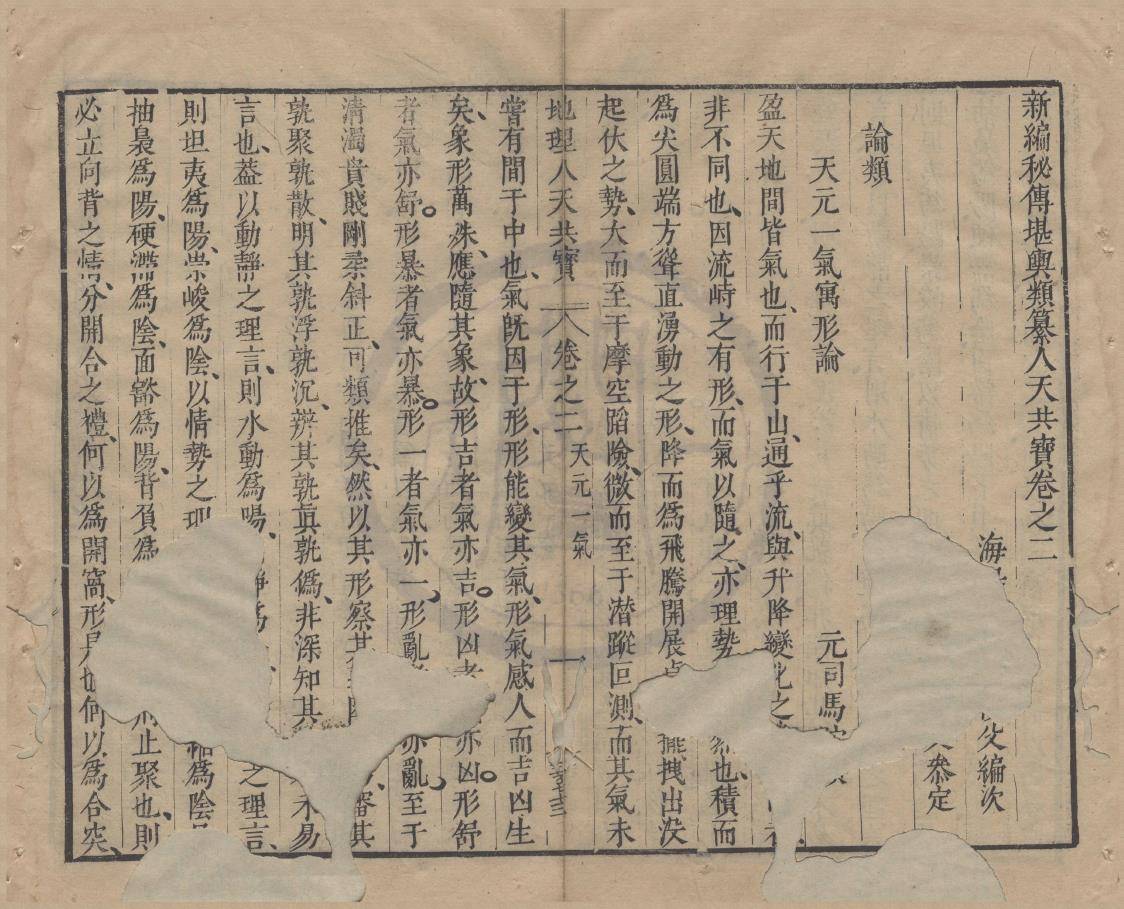 新編秘傳堪輿類纂人天共寶卷之二
海
編次
叅定
論類
天元一氣寓形論
元司馬
盈天地間皆氣也而行于山通乎流與升降變化之
非不同也因流峙之有形而氣以隨之亦理勢也積而
爲尖圓端方聳直湧動之形降而爲飛騰開展擺拽出没
起伏之勢大而至干摩空蹈險微而至于潜蹤叵測而其氣未
地理人天共寶
卷之二
天元一氣
一
嘗有間于中也氣旣因于形形能變其氣形氣感人而吉凶生
矣象形萬殊應隨其象故形吉者氣亦吉形凶者亦凶形舒
者氣亦舒形暴者氣亦暴形一者氣亦一形亂亦亂至于
清濁貴賤剛柔斜正可類推矣然以其形察其審其
孰聚孰散明其孰浮孰沉辨其孰眞孰僞非深知其未易
言也葢以動靜之理言則水動爲陽靜爲之理言
則坦夷爲陽崇峻爲陰以情勢之理爲陰
抽裊爲陽硬滯爲陰面豁爲陽背負爲止聚也則
必立向背之情分開合之禮何以爲開窩形是也何以爲合突